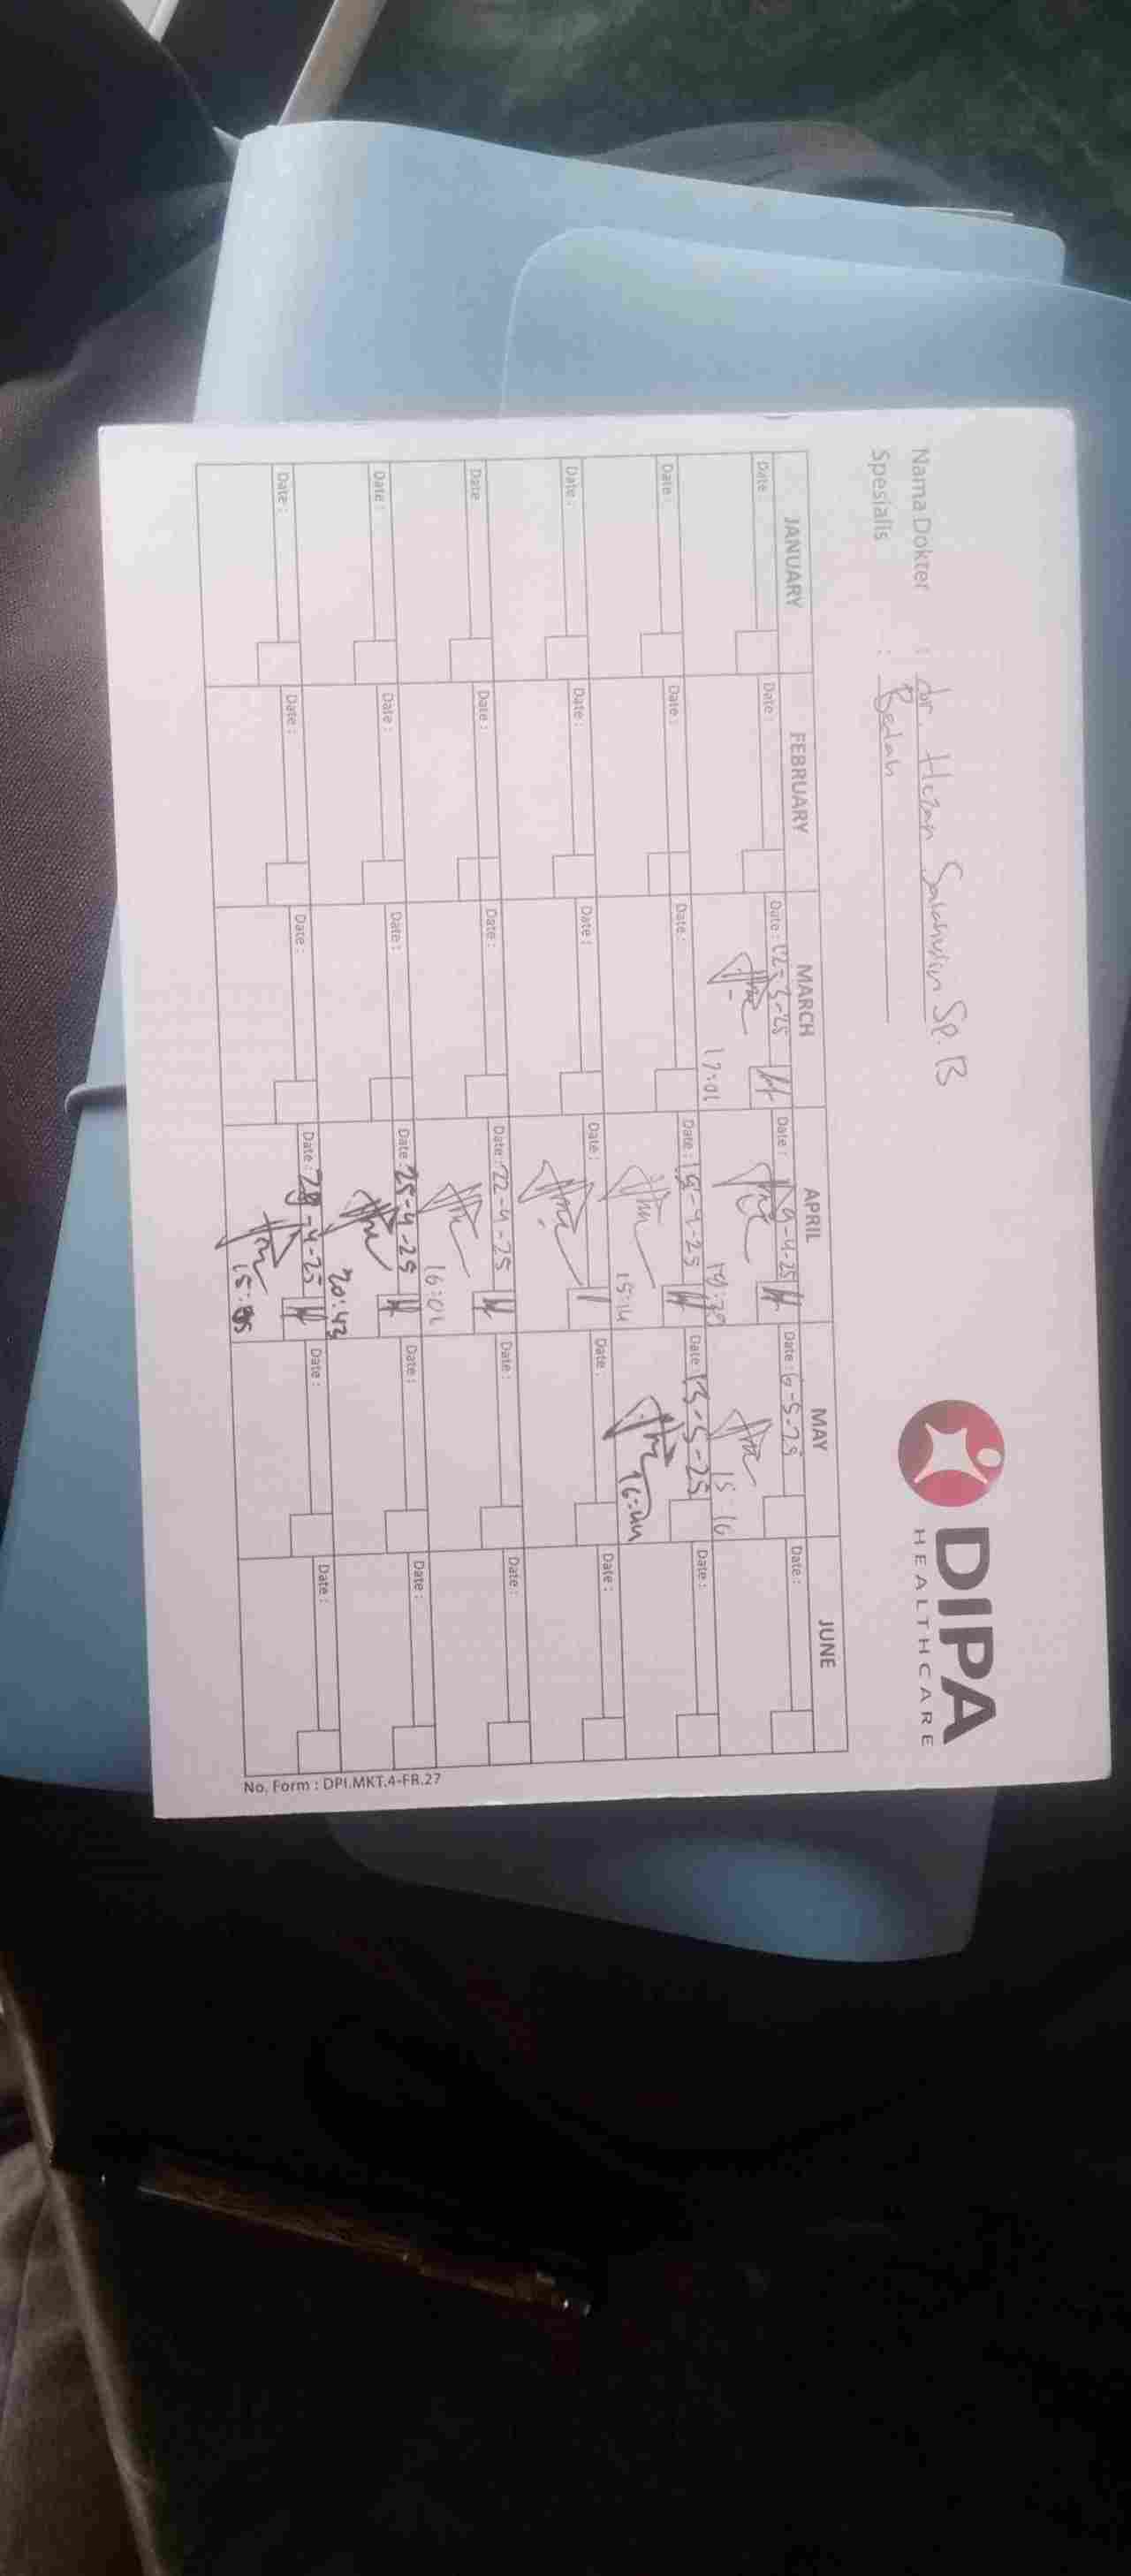 DIPA
HEALTHCARE
Nama Dokter : dr. Hizan Salahudin Sp.B
Spesialis : Bedah
JANUARY FEBRUARY MARCH APRIL MAY JUNE
Date : Date : Date : 12-3-25 Date : 9-4-25 Date : 6-5-25 Date :
17:01 15 16
Date : Date : Date : Date : 15-4-25 Date : 13-5-25 Date :
15:14 16:44
Date : Date : Date : Date : Date : Date :
Date : Date : Date : Date : 22-4-25 Date : Date :
16:01
Date : Date : Date : Date : 25-4-25 Date : Date :
20:43
Date : Date : Date : Date : 29-4-25 Date : Date :
No. Form : DPI.MKT.4-FR.27